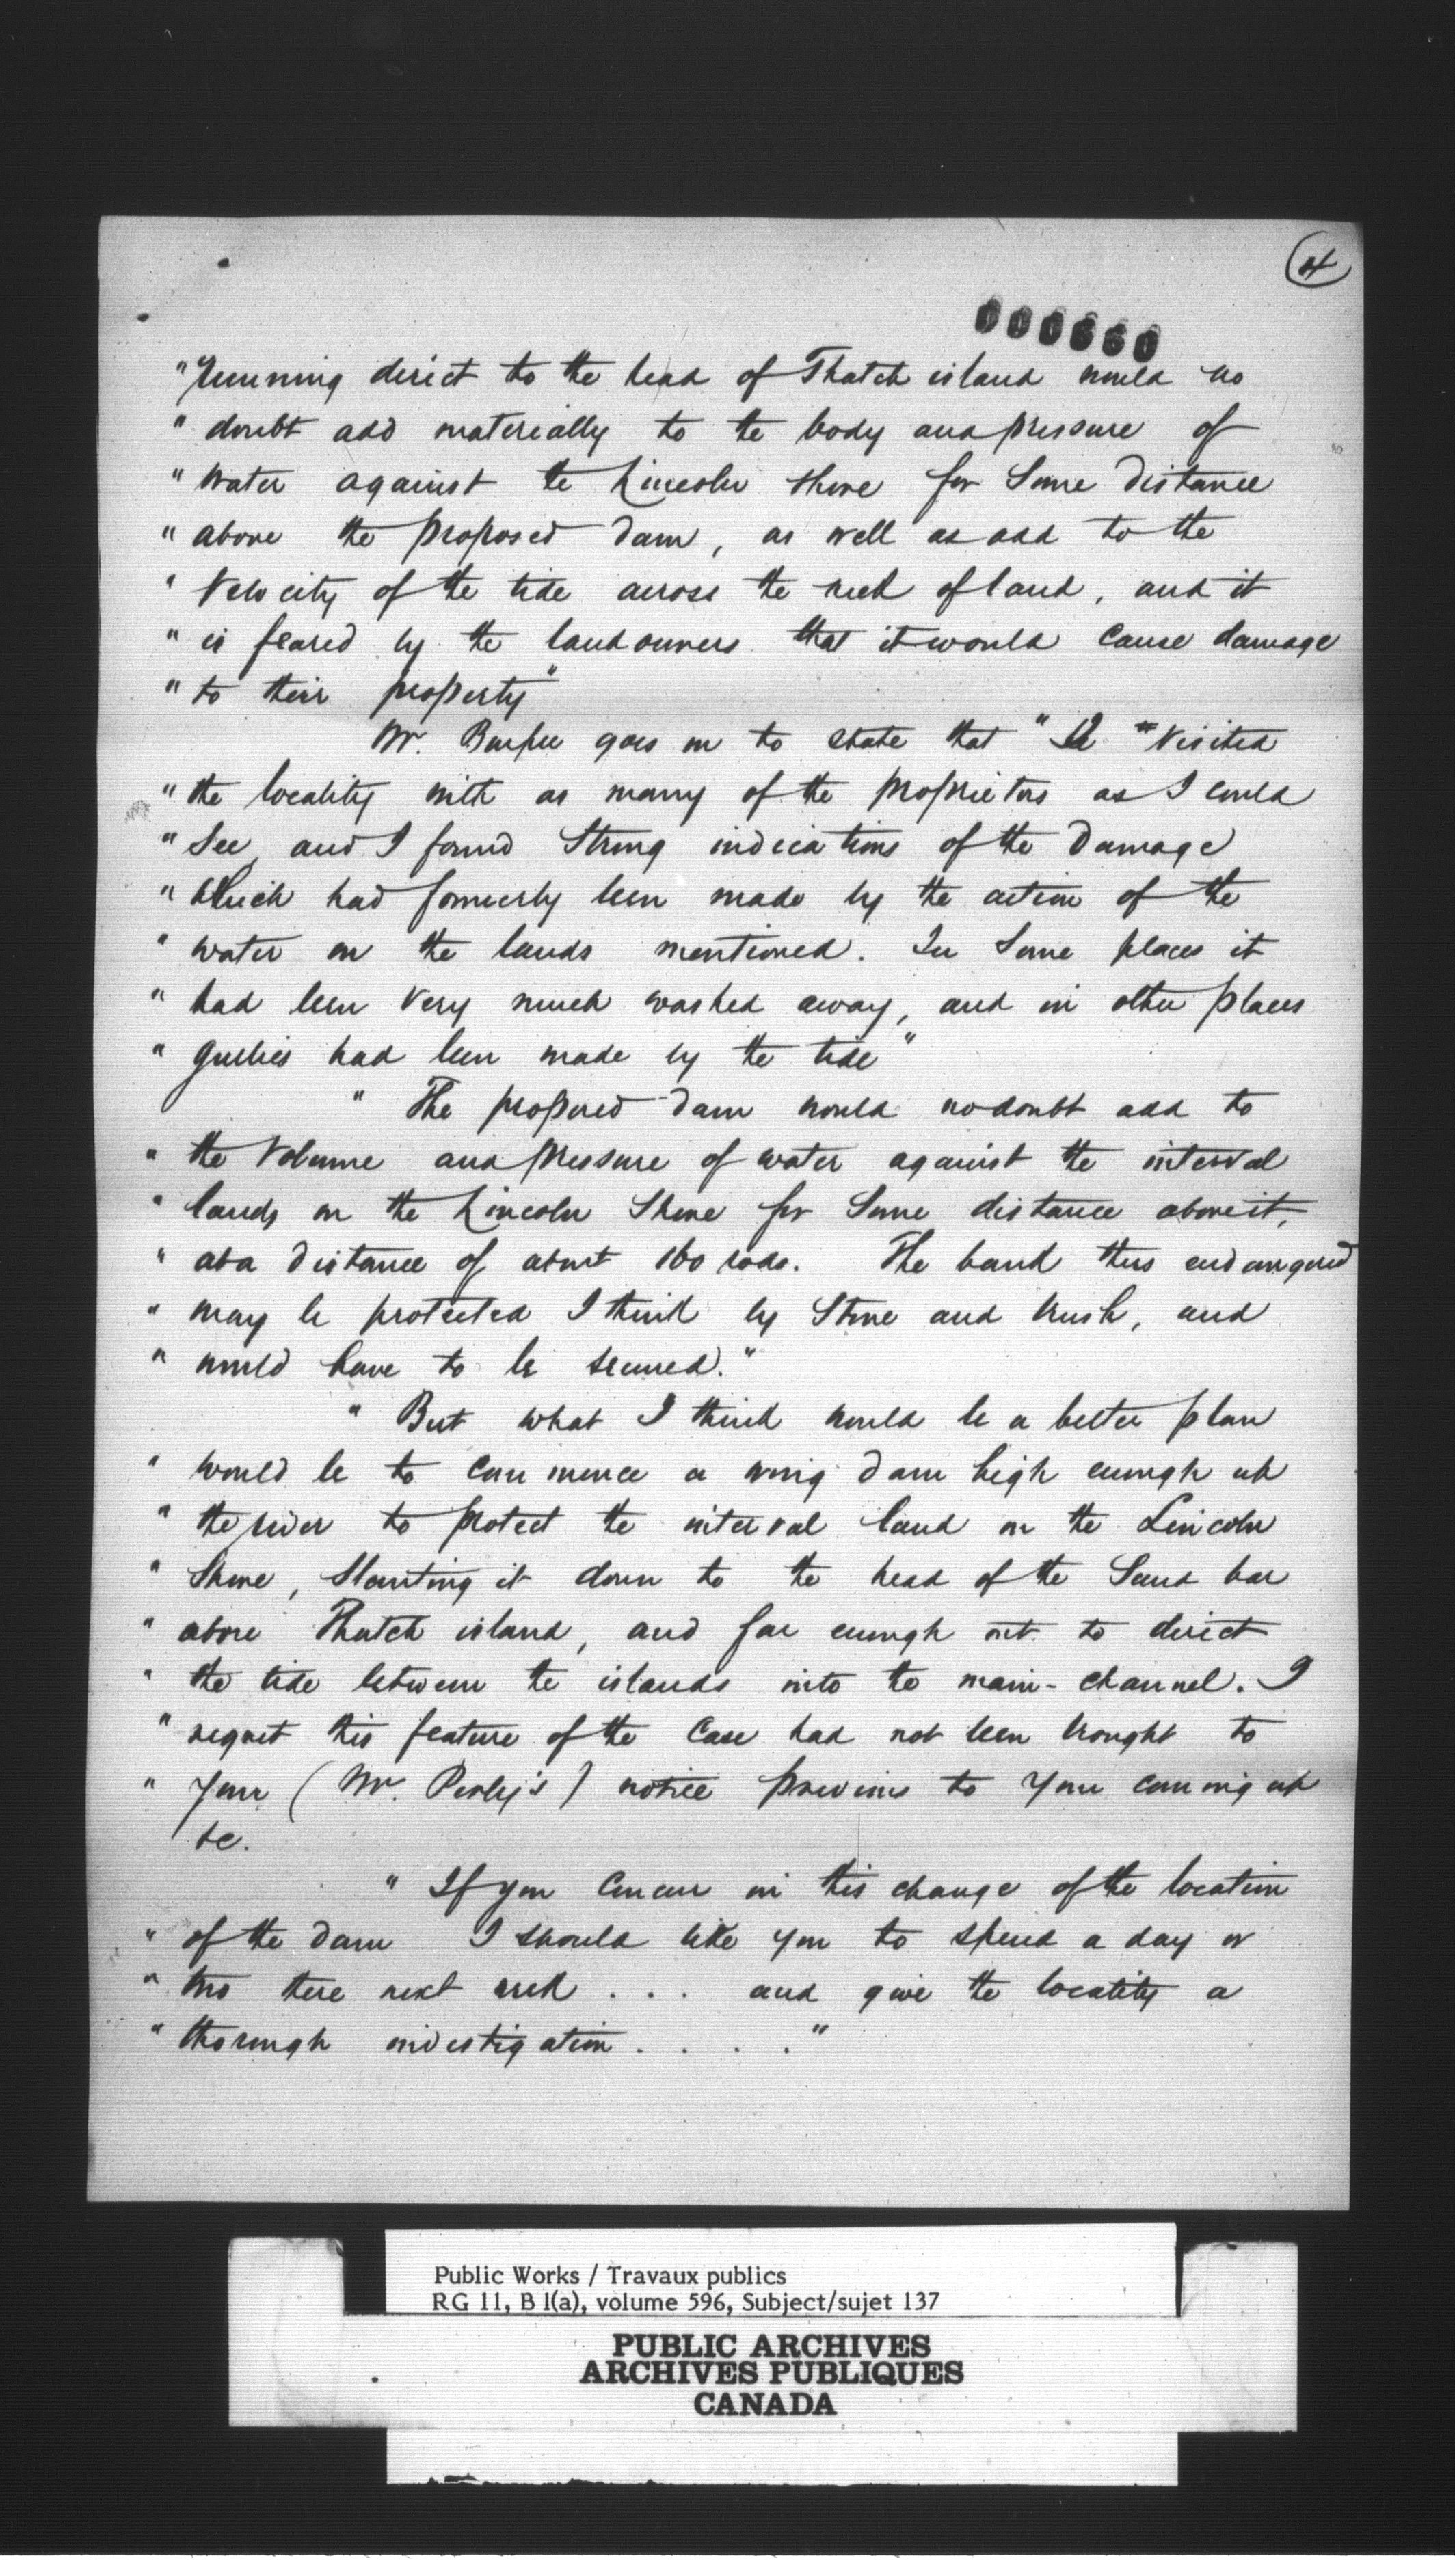 4
000660
"running direct to the head of Thatch island would no
" doubt add materially to the body and pressure of
" water against the Lincoln shore for some distance
" above the proposed dam, as well as add to the
" velocity of the tide across the neck of land, and it
" is feared by the landowners that it would cause damage
" to their property"
Mr. Burpee goes on to state that " I " visited
" the locality with as many of the proprietors as I could
" see, and I found strong indications of the damage
" which had formerly been made by the action of the
" water on the lands mentioned. In some places it
" had been very much washed away, and in other places
" gullies had been made by the tide"
" The proposed dam would no doubt add to
" the volume and pressure of water against the interval
" lands on the Lincoln shore for some distance above it,
" at a distance of about 160 rods. The bank thus endangered
" may be protected I think by stone and brush, and
" would have to be secured."
" But what I think would be a better plan
" would be to commence a wing dam high enough up
" the river to protect the interval land on the Lincoln
" shore, slanting it down to the head of the sand bar
" above Thatch island, and far enough out to direct
" the tide between the islands into the main-channel. I
" regret this feature of the case had not been brought to
" your (Mr. Perley's) notice previous to your coming up
&c.
" If you concur in this change of the location
" of the dam I should like you to spend a day or
" two there next week . . . and give the locality a
" thorough investigation . . . . "
Public Works / Travaux publics
RG 11, B 1(a), volume 596, Subject/sujet 137
PUBLIC ARCHIVES
ARCHIVES PUBLIQUES
CANADA